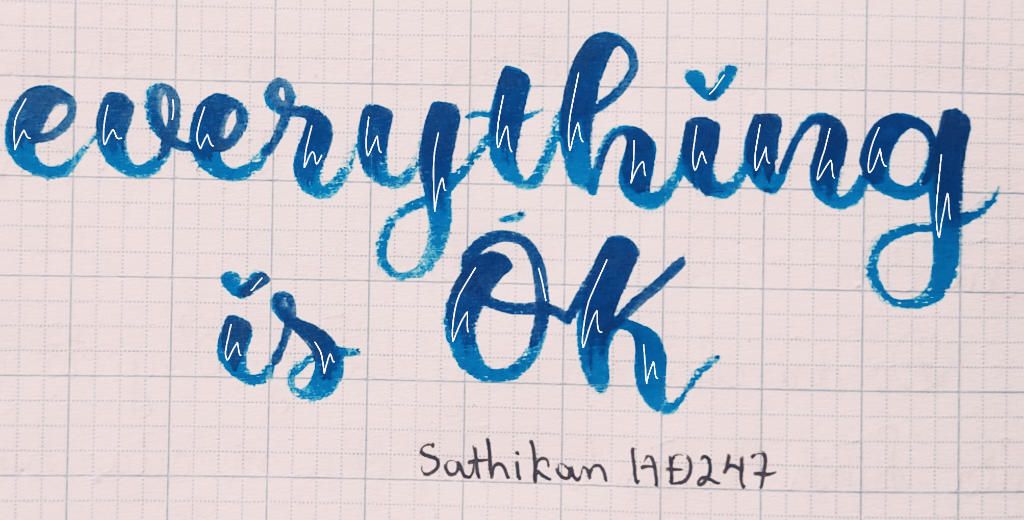 everything
is OK
Sathikan 17Đ247